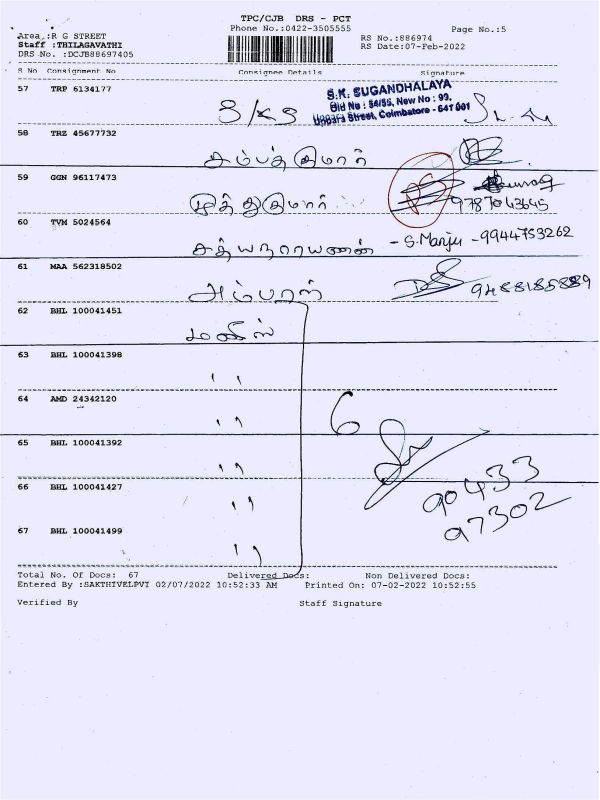 TPC/CJB DRS - PCT
Phone No.:0422-3505555
Page No.:5
Area :R G STREET
RS No.:886974
Staff :THILAGAVATHI
RS Date:07-Feb-2022
DRS No. :DCJB88697405
S No Consignment No Consignee Details Signature
57 TRP 6134177
S/KS
S.K. SUGANDHALAYA
Old No : 54/55, New No : 99,
Uppara Street, Coimbatore - 641 001
58 TRZ 45677732
சம்பத்குமார்
59 GGN 96117473
முத்துகுமார் 9787043645
60 TVM 5024564
சத்யநாராயணன் - S.Manju - 9944753262
61 MAA 562318502
அம்பாள் 9488185889
62 BHL 100041451
மணிஸ்
63 BHL 100041398
"
64 AMD 24342120
" 6
65 BHL 100041392
"
66 BHL 100041427
" 90433
97302
67 BHL 100041499
"
Total No. Of Docs: 67 Delivered Docs: Non Delivered Docs:
Entered By :SAKTHIVELPVI 02/07/2022 10:52:33 AM Printed On: 07-02-2022 10:52:55
Verified By Staff Signature